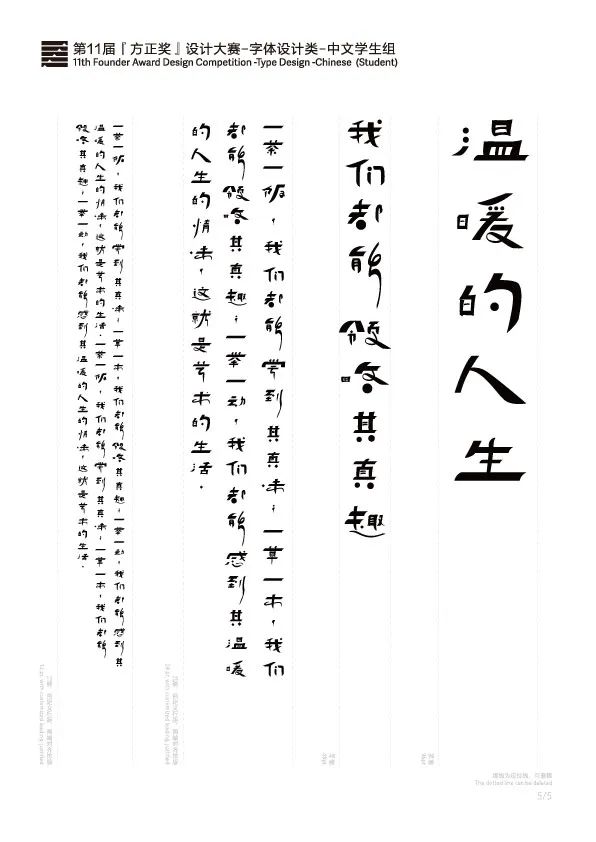 第11届『方正奖』设计大赛-字体设计类-中文学生组
11th Founder Award Design Competition -Type Design -Chinese (Student)
温暖的人生
我们都能领略其真趣
一茶一饭，我们都能尝到其真味，一草一木，我们
都能领略其真趣；一举一动，我们都能感到其温暖
的人生的情味，这就是艺术的生活．
一茶一饭，我们都能尝到其真味，一草一木，我们都能领略其真趣，一举一动，我们都能感到其
温暖的人生的情味，这就是艺术的生活．一茶一饭，我们都能尝到其真味，一草一木，我们都能
领略其真趣，一举一动，我们都能感到其温暖的人生的情味，这就是艺术的生活．
The dotted line can be deleted
5/5